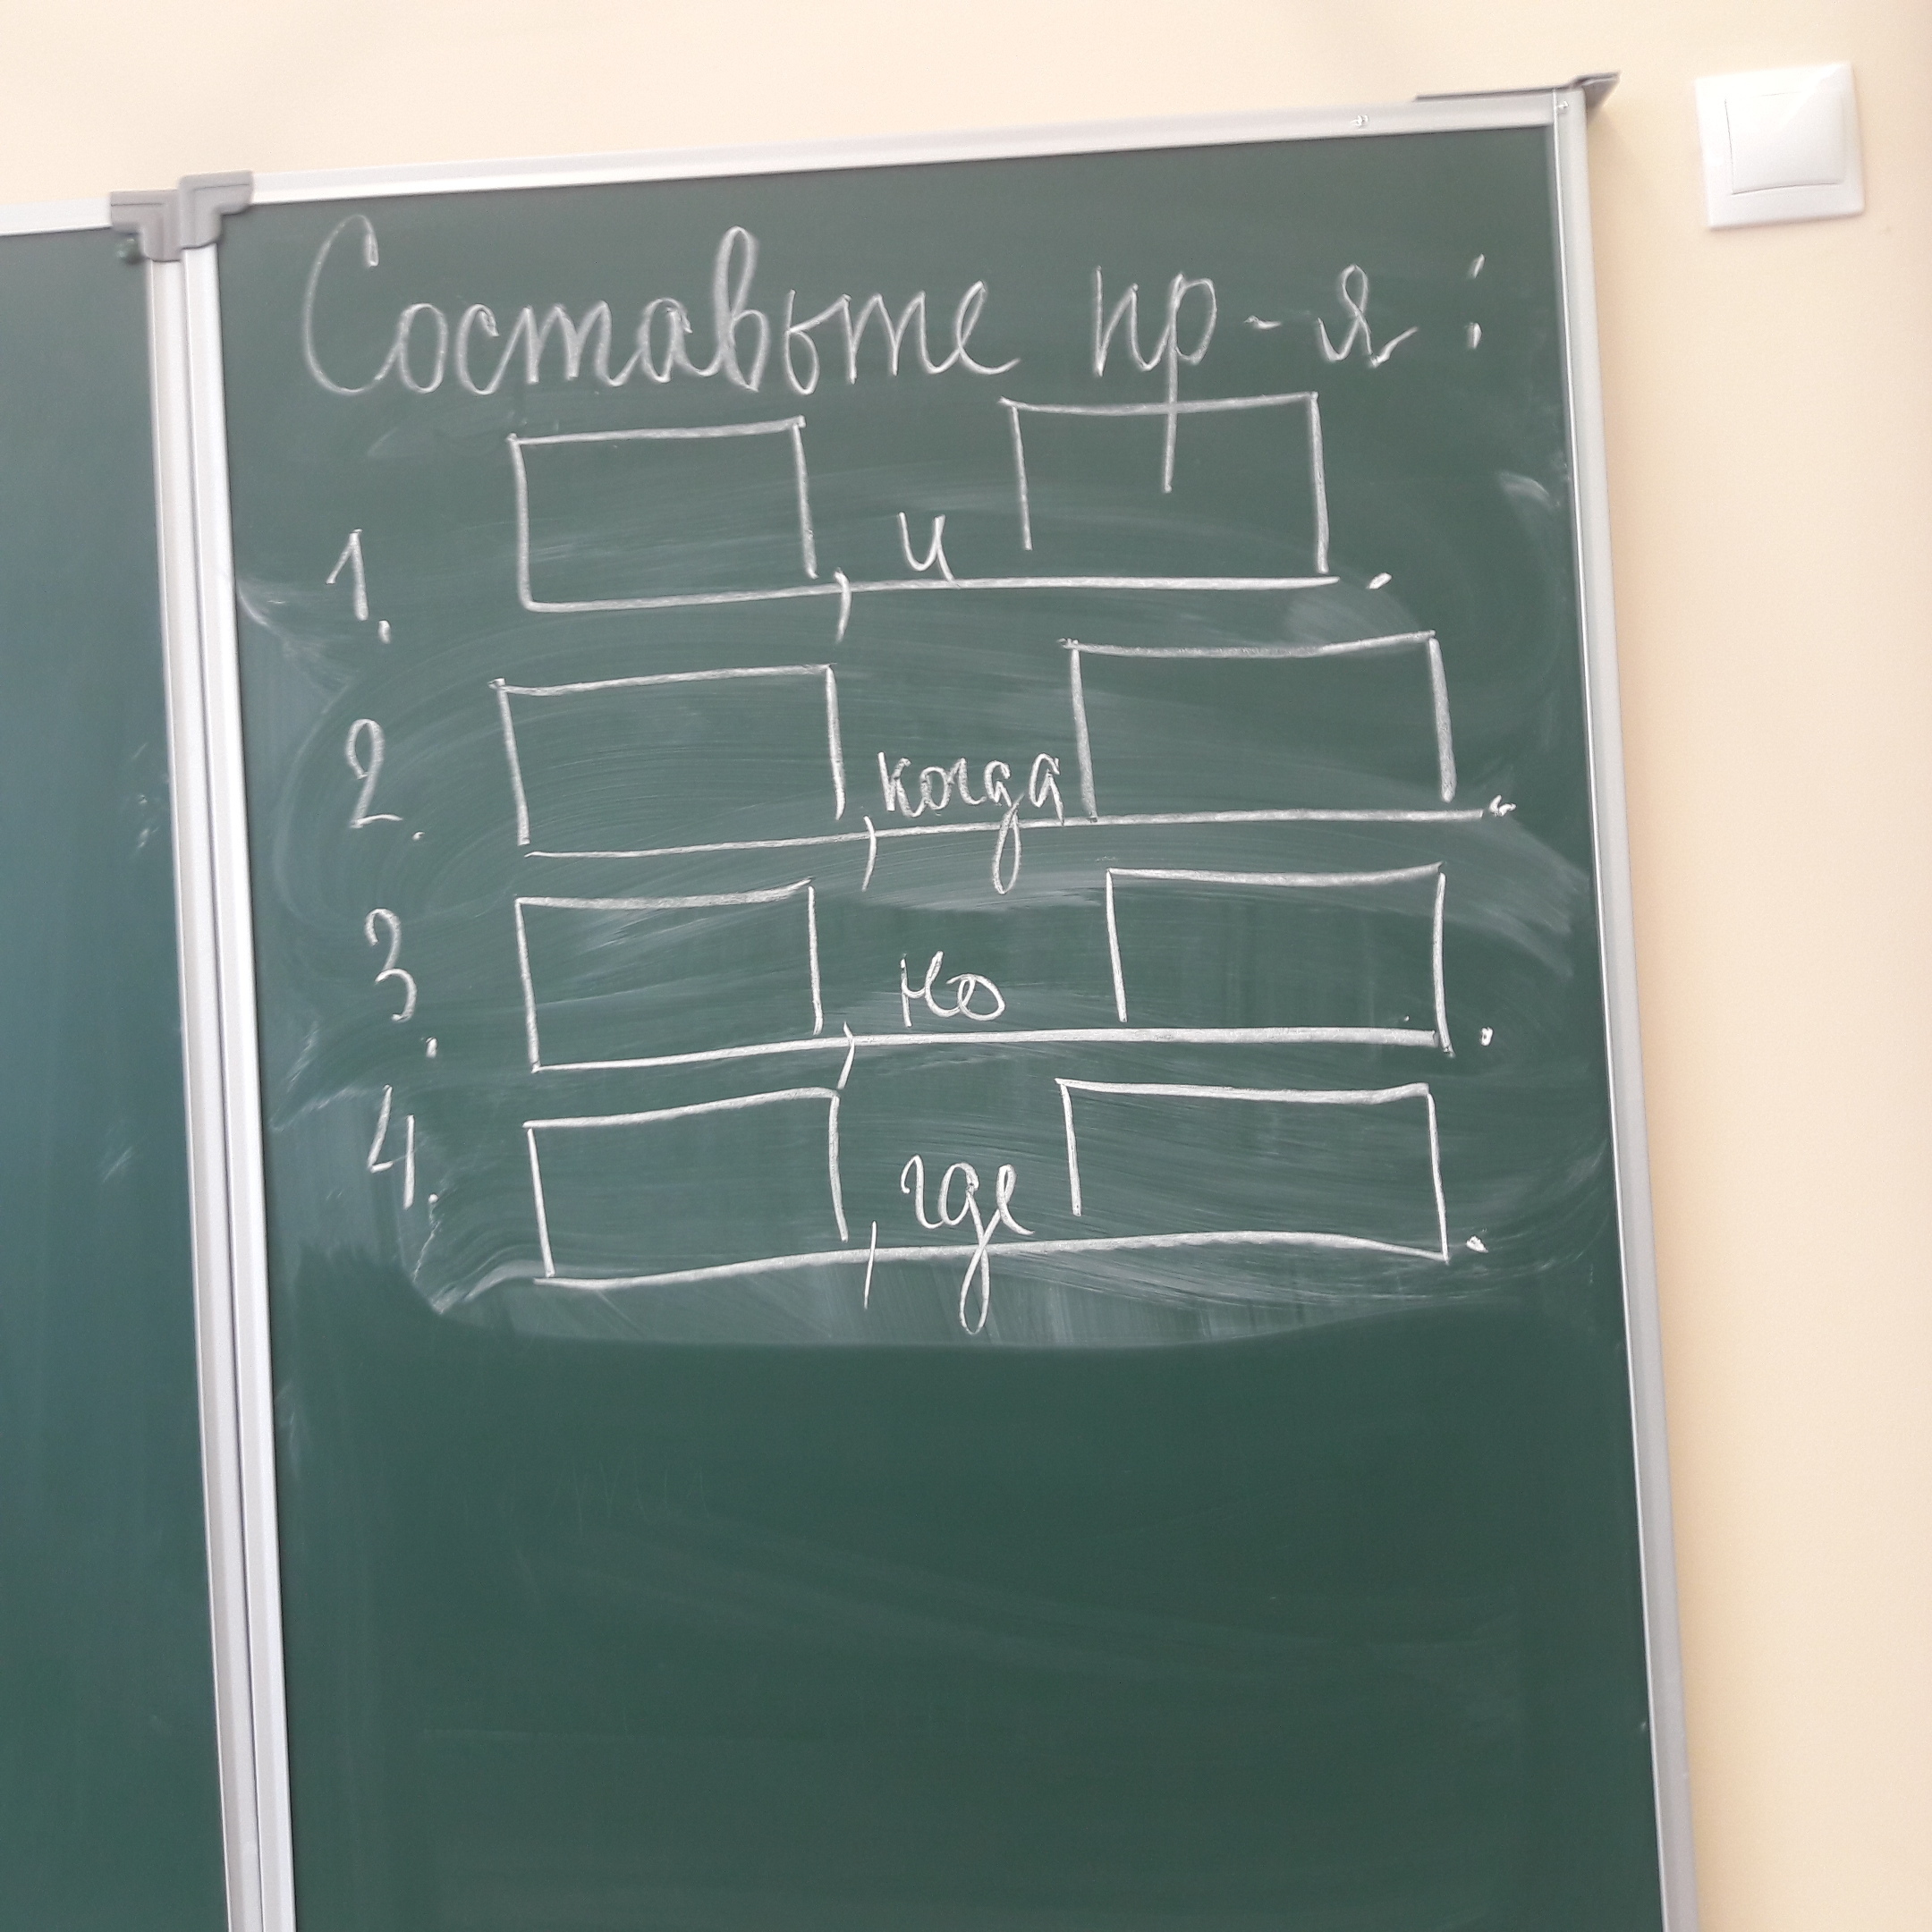 Составьте пр-я:
1. , и .
2. , когда .
3. , но .
4. , где .